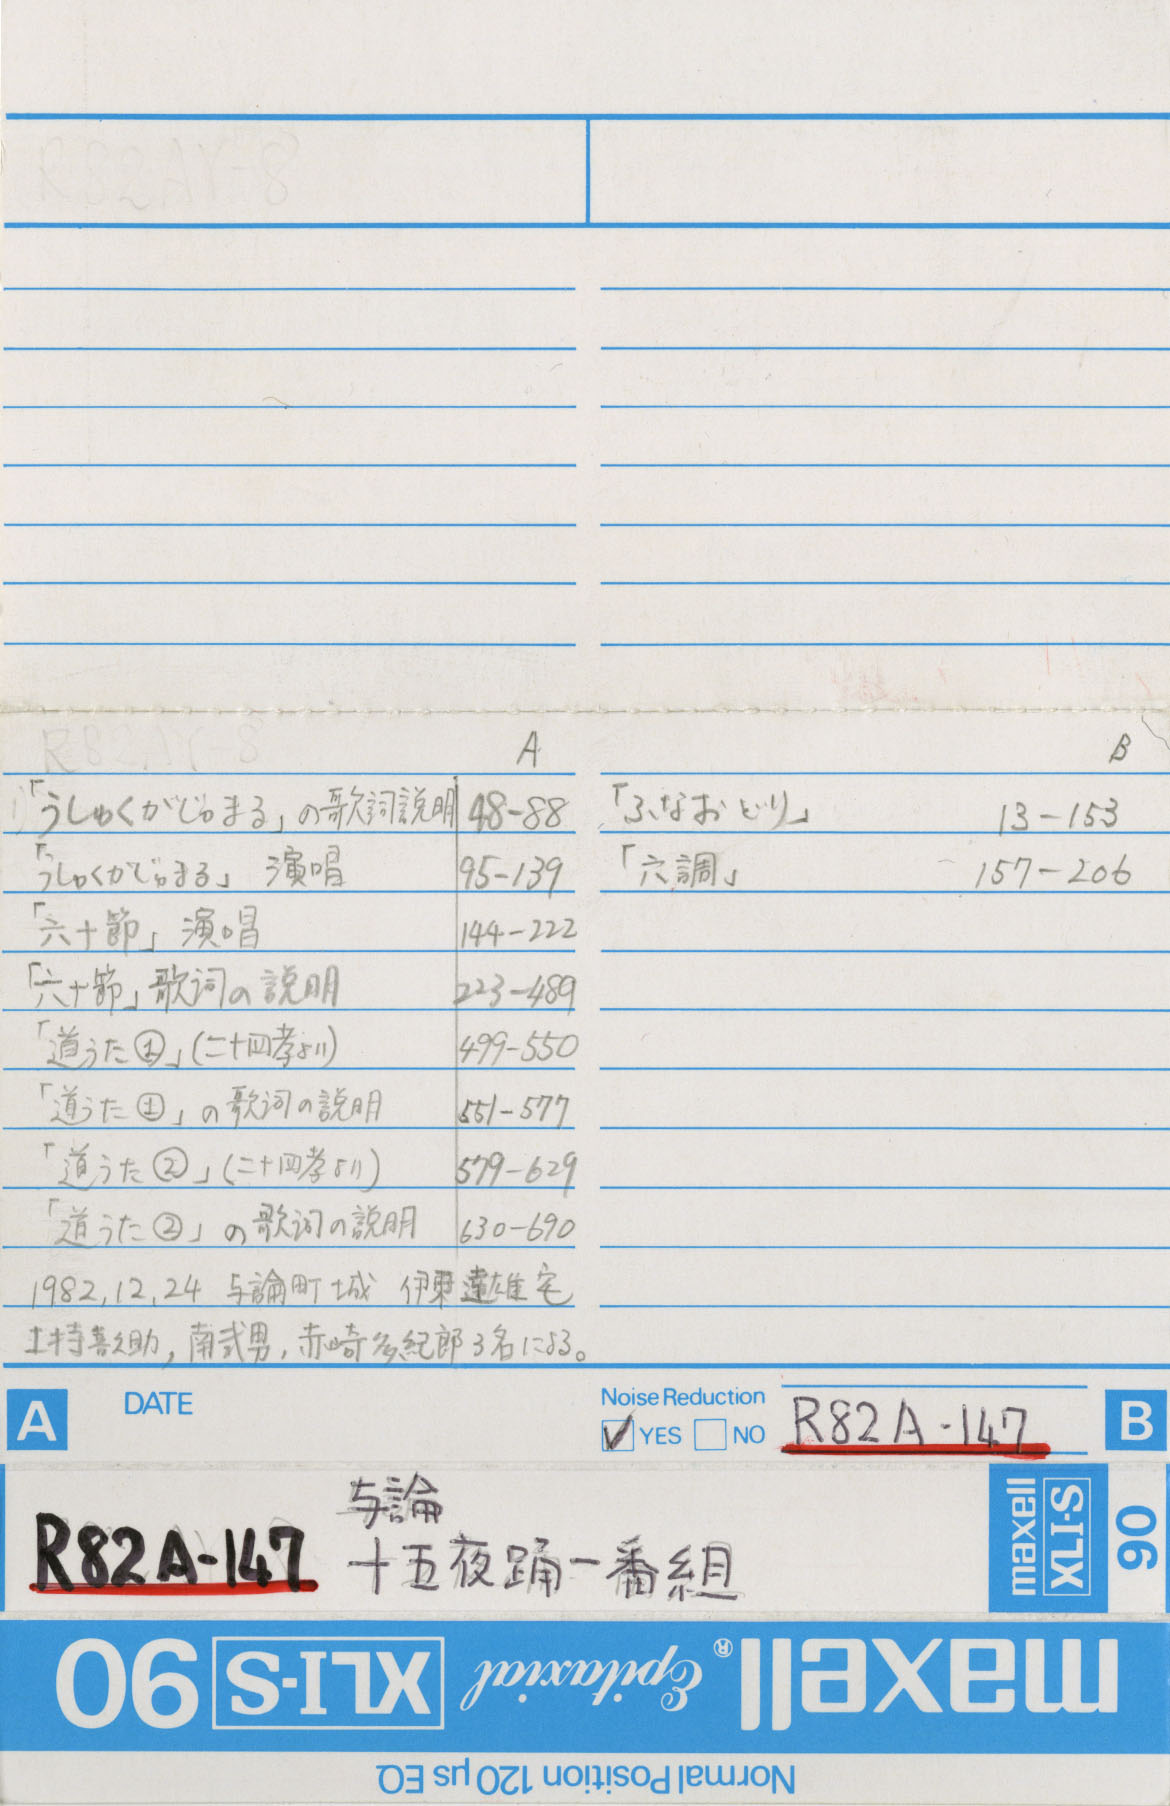 A
B
「うしゅくがじゅまる」の歌詞説明 48-88
「うしゅくがじゅまる」 演唱 95-139
「六十節」 演唱 144-222
「六十節」歌詞の説明 223-489
「道うた①」(二十四孝より) 499-550
「道うた①」の歌詞の説明 551-577
「道うた②」(二十四孝より) 579-629
「道うた②」の歌詞の説明 630-690
1982,12,24 与論町城 伊東達雄宅
土持喜之助, 南武男, 赤崎多紀郎 3名による。
「ふなおどり」 13-153
「六調」 157-206
A
DATE
Noise Reduction
YES NO
R82A-147
B
R82A-147
与論
十五夜踊一番組
maxell
XLI-S
90
maxell® Epitaxial XLI-S 90
Normal Position 120 µs EQ